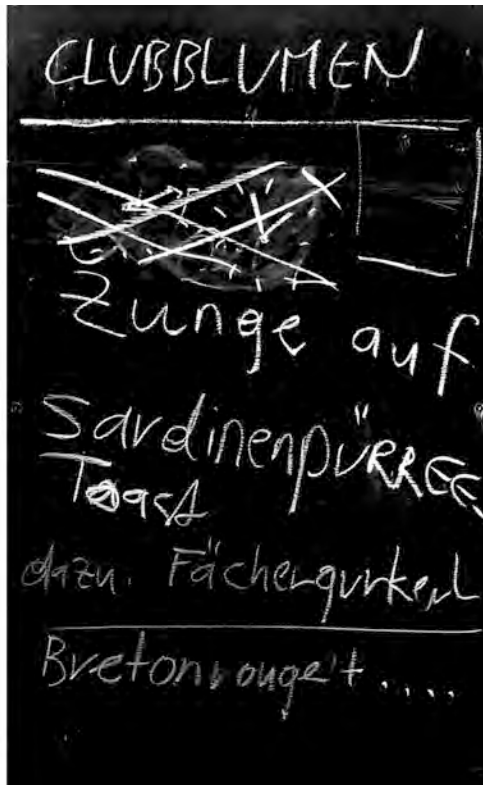 CLUBBLUMEN
Zunge auf
SardinenpÜRREE
Toast
dazu: Fächergurkerl
Bretonrouge't ....